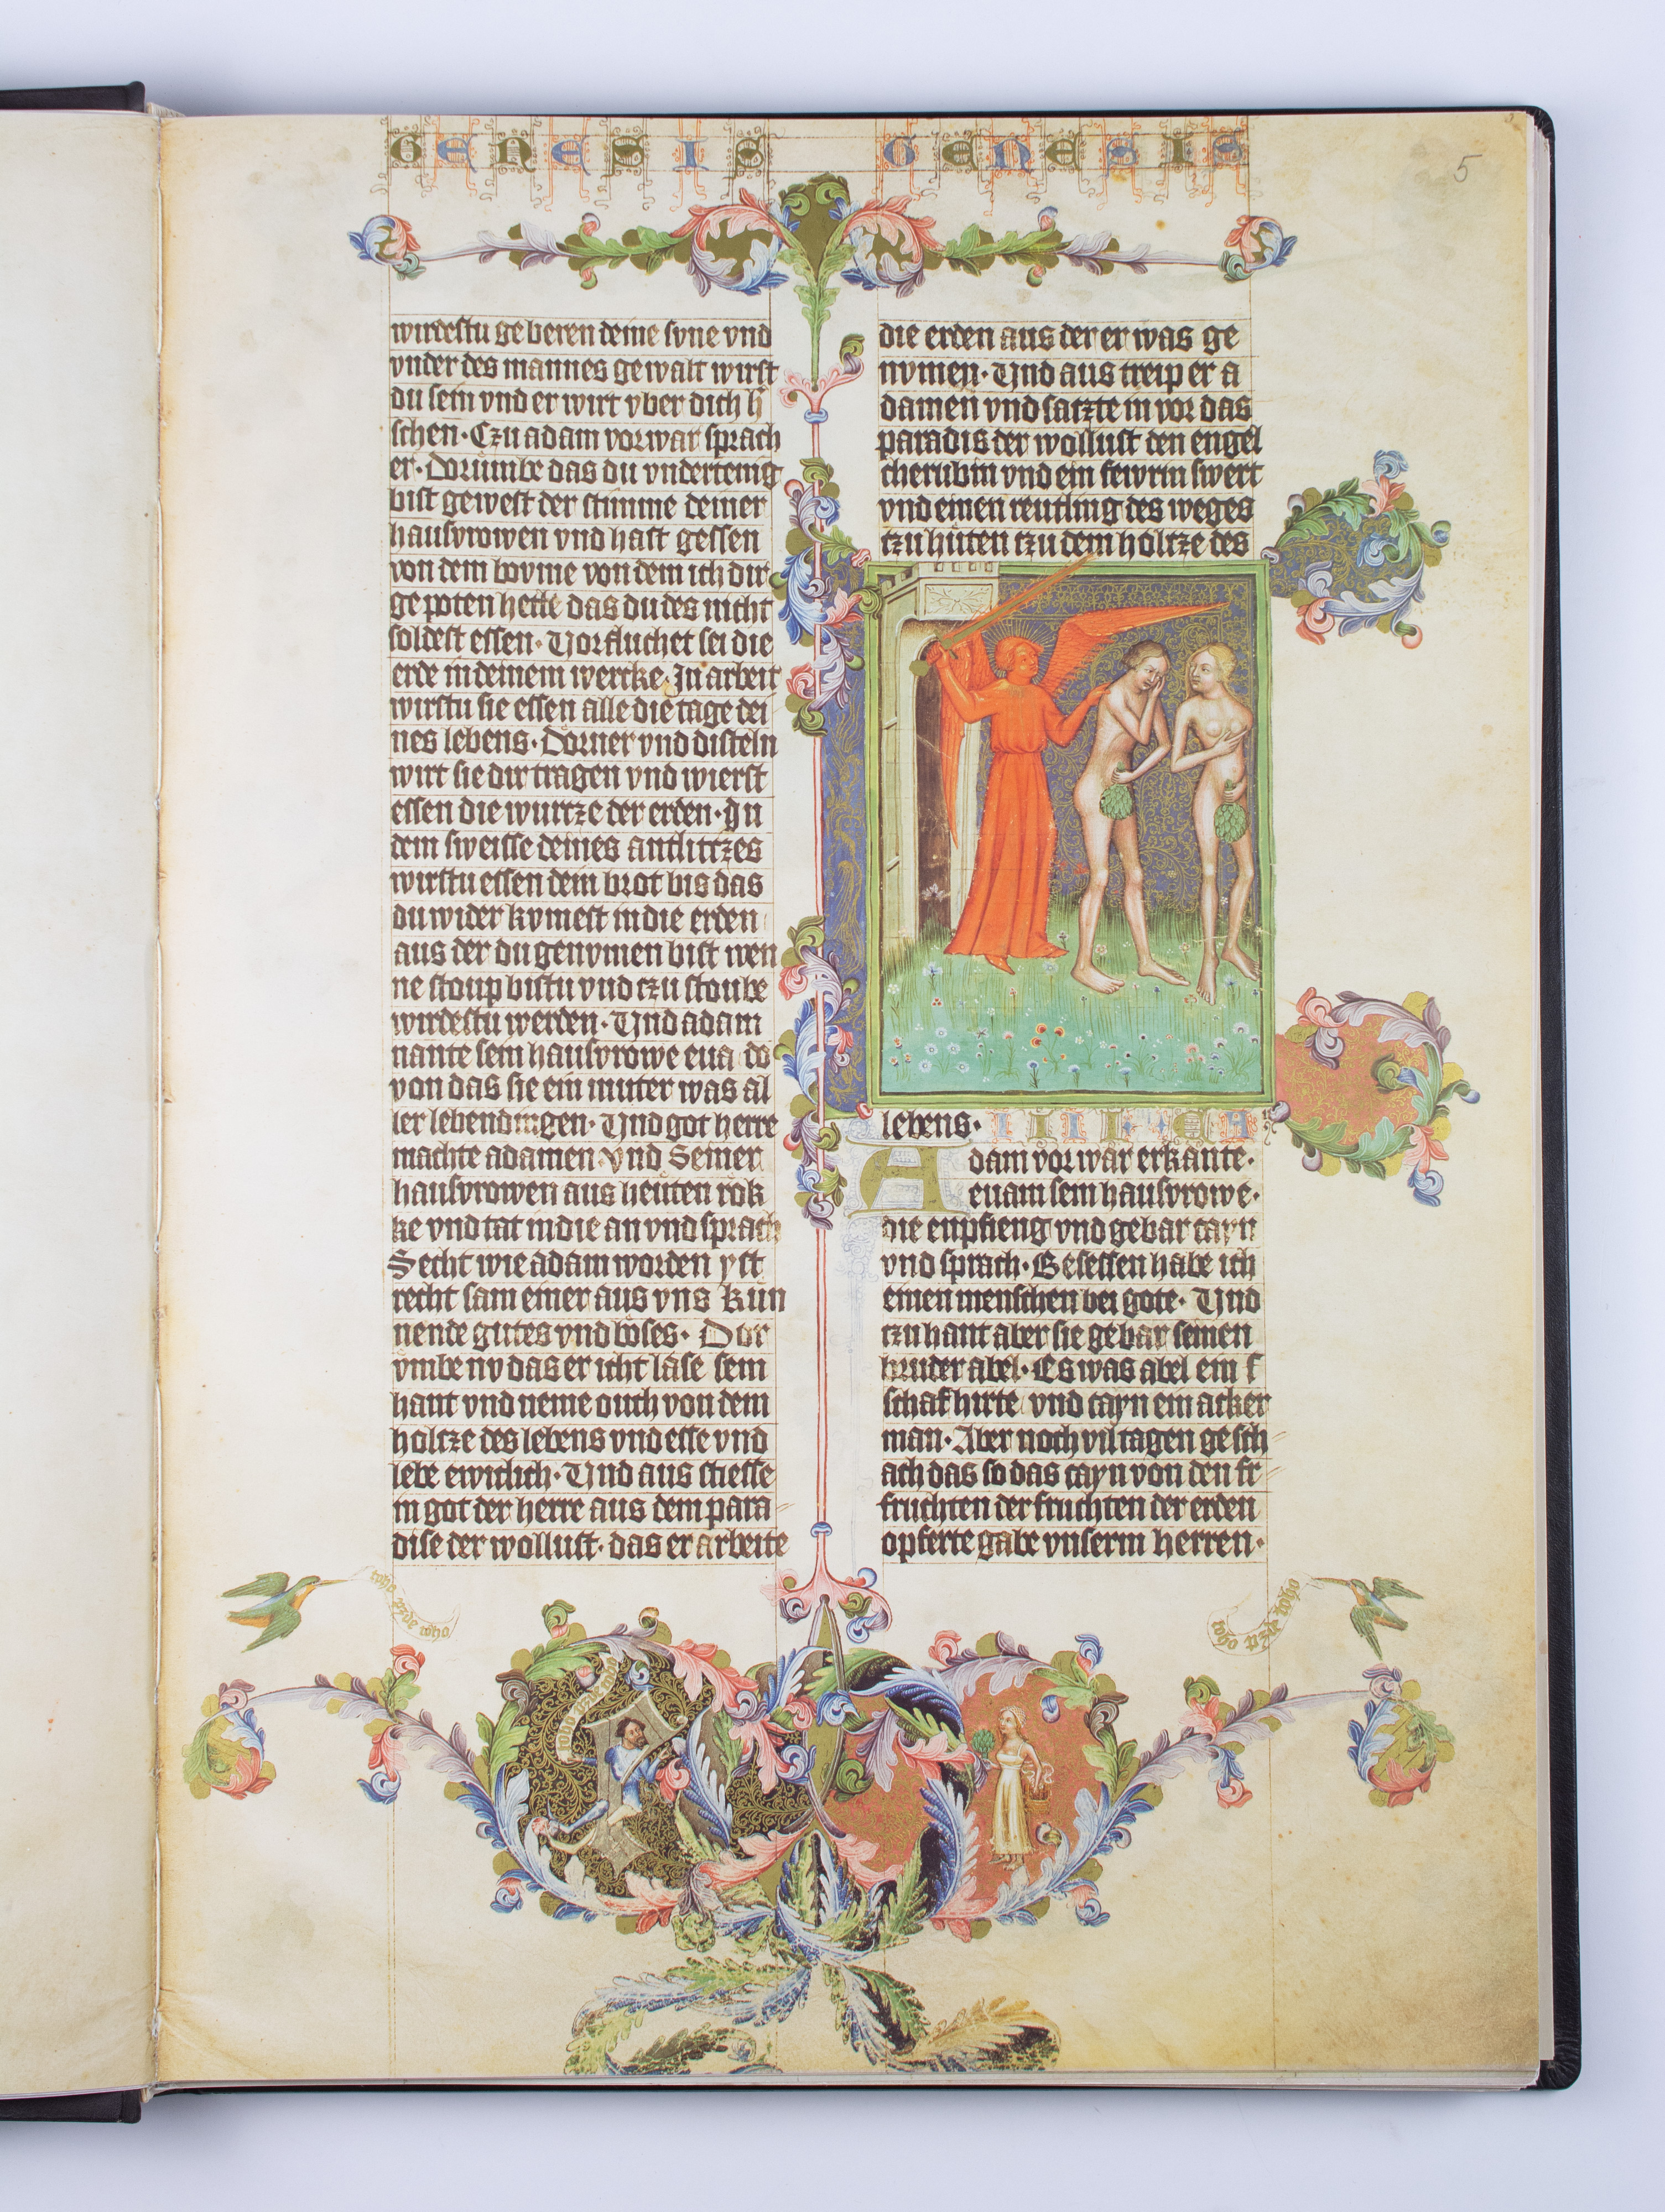 GENESIS GENESIS
5
wirdestu geberen deine sune vnd
vnder des mannes gewalt wirst
du sein vnd er wirt vber dich h
schen · Czu adam vorwar sprach
er · Dorumbe das du vndertenig
bist gewest der stimme deiner
hausvrowen vnd hast gessen
von dem bovme von dem ich dir
gepoten hette das du des nicht
soldest essen · Vorfluchet sei die
erde in deinem wercke · In arbeit
wirstu sie essen alle die tage dei
nes lebens · Dorner vnd disteln
wirt sie dir tragen vnd wierst
essen die wurtze der erden · In
dem sweisse deines antlitzes
wirstu essen dein brot bis das
du wider kvmest in die erden
aus der du genvmen bist wen
ne stoup bistu vnd czu stoube
wirdestu werden · Vnd adam
nante sein hausvrowe eua do
von das sie ein muter was al
ler lebendingen · Vnd got herre
machte adamen vnd Seiner
hausvrowen aus heuten rok
ke vnd tat in die an vnd sprach
Secht wie adam worden yst
recht sam einer aus vns kun
nende gutes vnd böses · Dor
vmbe nv das er icht lase sein
hant vnd neme ouch von dem
holtze des lebens vnd esse vnd
lebe ewiclich · Vnd aus stiesse
in got der herre aus dem para
dise der wollust · das er arbeite
die erden aus der er was ge
nvmen · Vnd aus treip er a
damen vnd satzte in vor das
paradis der wollust den engel
cherubin vnd ein fewrin swert
vnd einen reutling des weges
czu huten czu dem holtze des
lebens · IIII
Adam vorwar erkante ·
euam sein hausvrowe ·
die enpfieng vnd gebar cayn
vnd sprach · Besessen habe ich
einen menschen bei gote · Vnd
czu hant aber sie gebar seinen
bruder abel · Es was abel ein s
schafhirte vnd cayn ein acker
man · Aber noch vil tagen gesch
ach das so das cayn von den fr
fruchten der fruchten der erden
opferte gabe vnserm herren ·
toho pzde toho
toho pzde toho